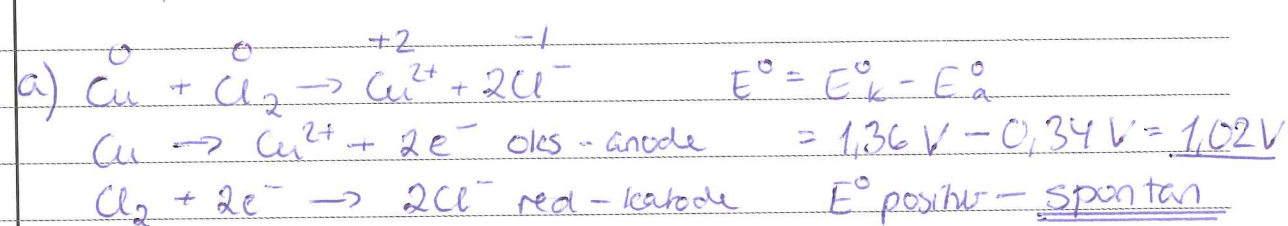 0 0 +2 -1
a) Cu + Cl₂ → Cu²⁺ + 2Cl⁻ E° = E°ₖ - E°ₐ
Cu → Cu²⁺ + 2e⁻ oks - anode = 1,36 V - 0,34 V = 1,02 V
Cl₂ + 2e⁻ → 2Cl⁻ red - katode E° positiv - spontan